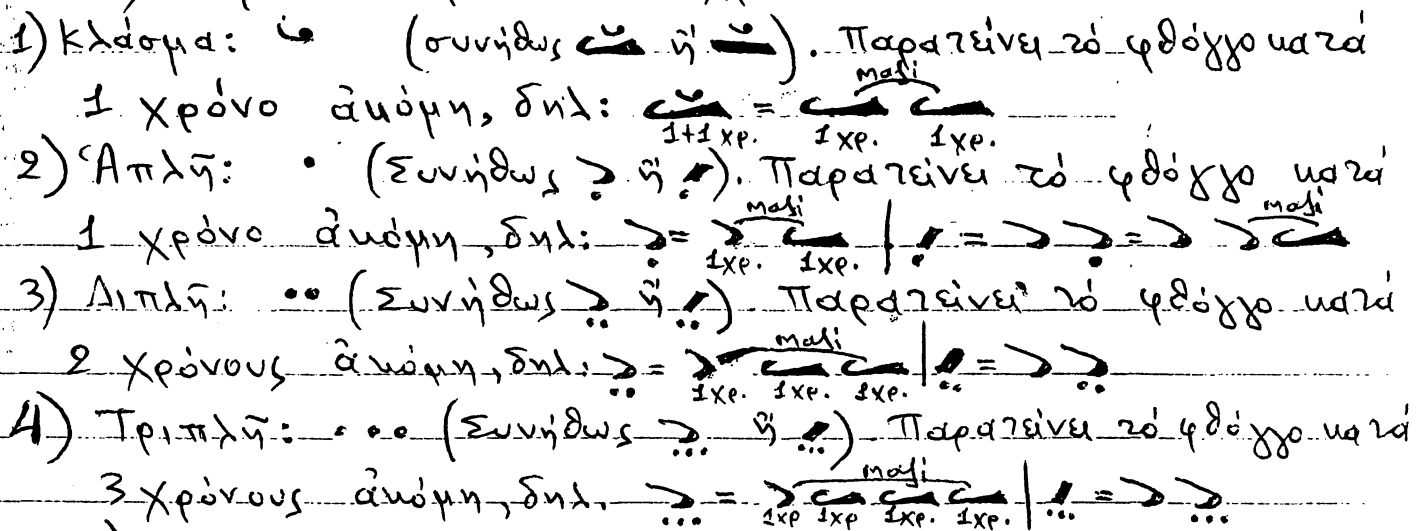 1) Κλάσμα: (συνήθως ἤ ). Παρατείνει τό φθόγγο κατά
μαζί
1 χρόνο ἀκόμη, δηλ: =
1+1 χρ. 1 χρ. 1 χρ.
2) Ἁπλῆ: • (Συνήθως ἤ ). Παρατείνει τό φθόγγο κατά
μαζί μαζί
1 χρόνο ἀκόμη, δηλ: = | = =
1χρ. 1χρ.
3) Διπλῆ: •• (Συνήθως ἤ ). Παρατείνει τό φθόγγο κατά
μαζί
2 χρόνους ἀκόμη, δηλ: = | =
1χρ. 1χρ. 1χρ.
4) Τριπλῆ: • • • (Συνήθως ἤ ). Παρατείνει τό φθόγγο κατά
μαζί
3 χρόνους ἀκόμη, δηλ. = | =
1χρ 1χρ 1χρ. 1χρ.